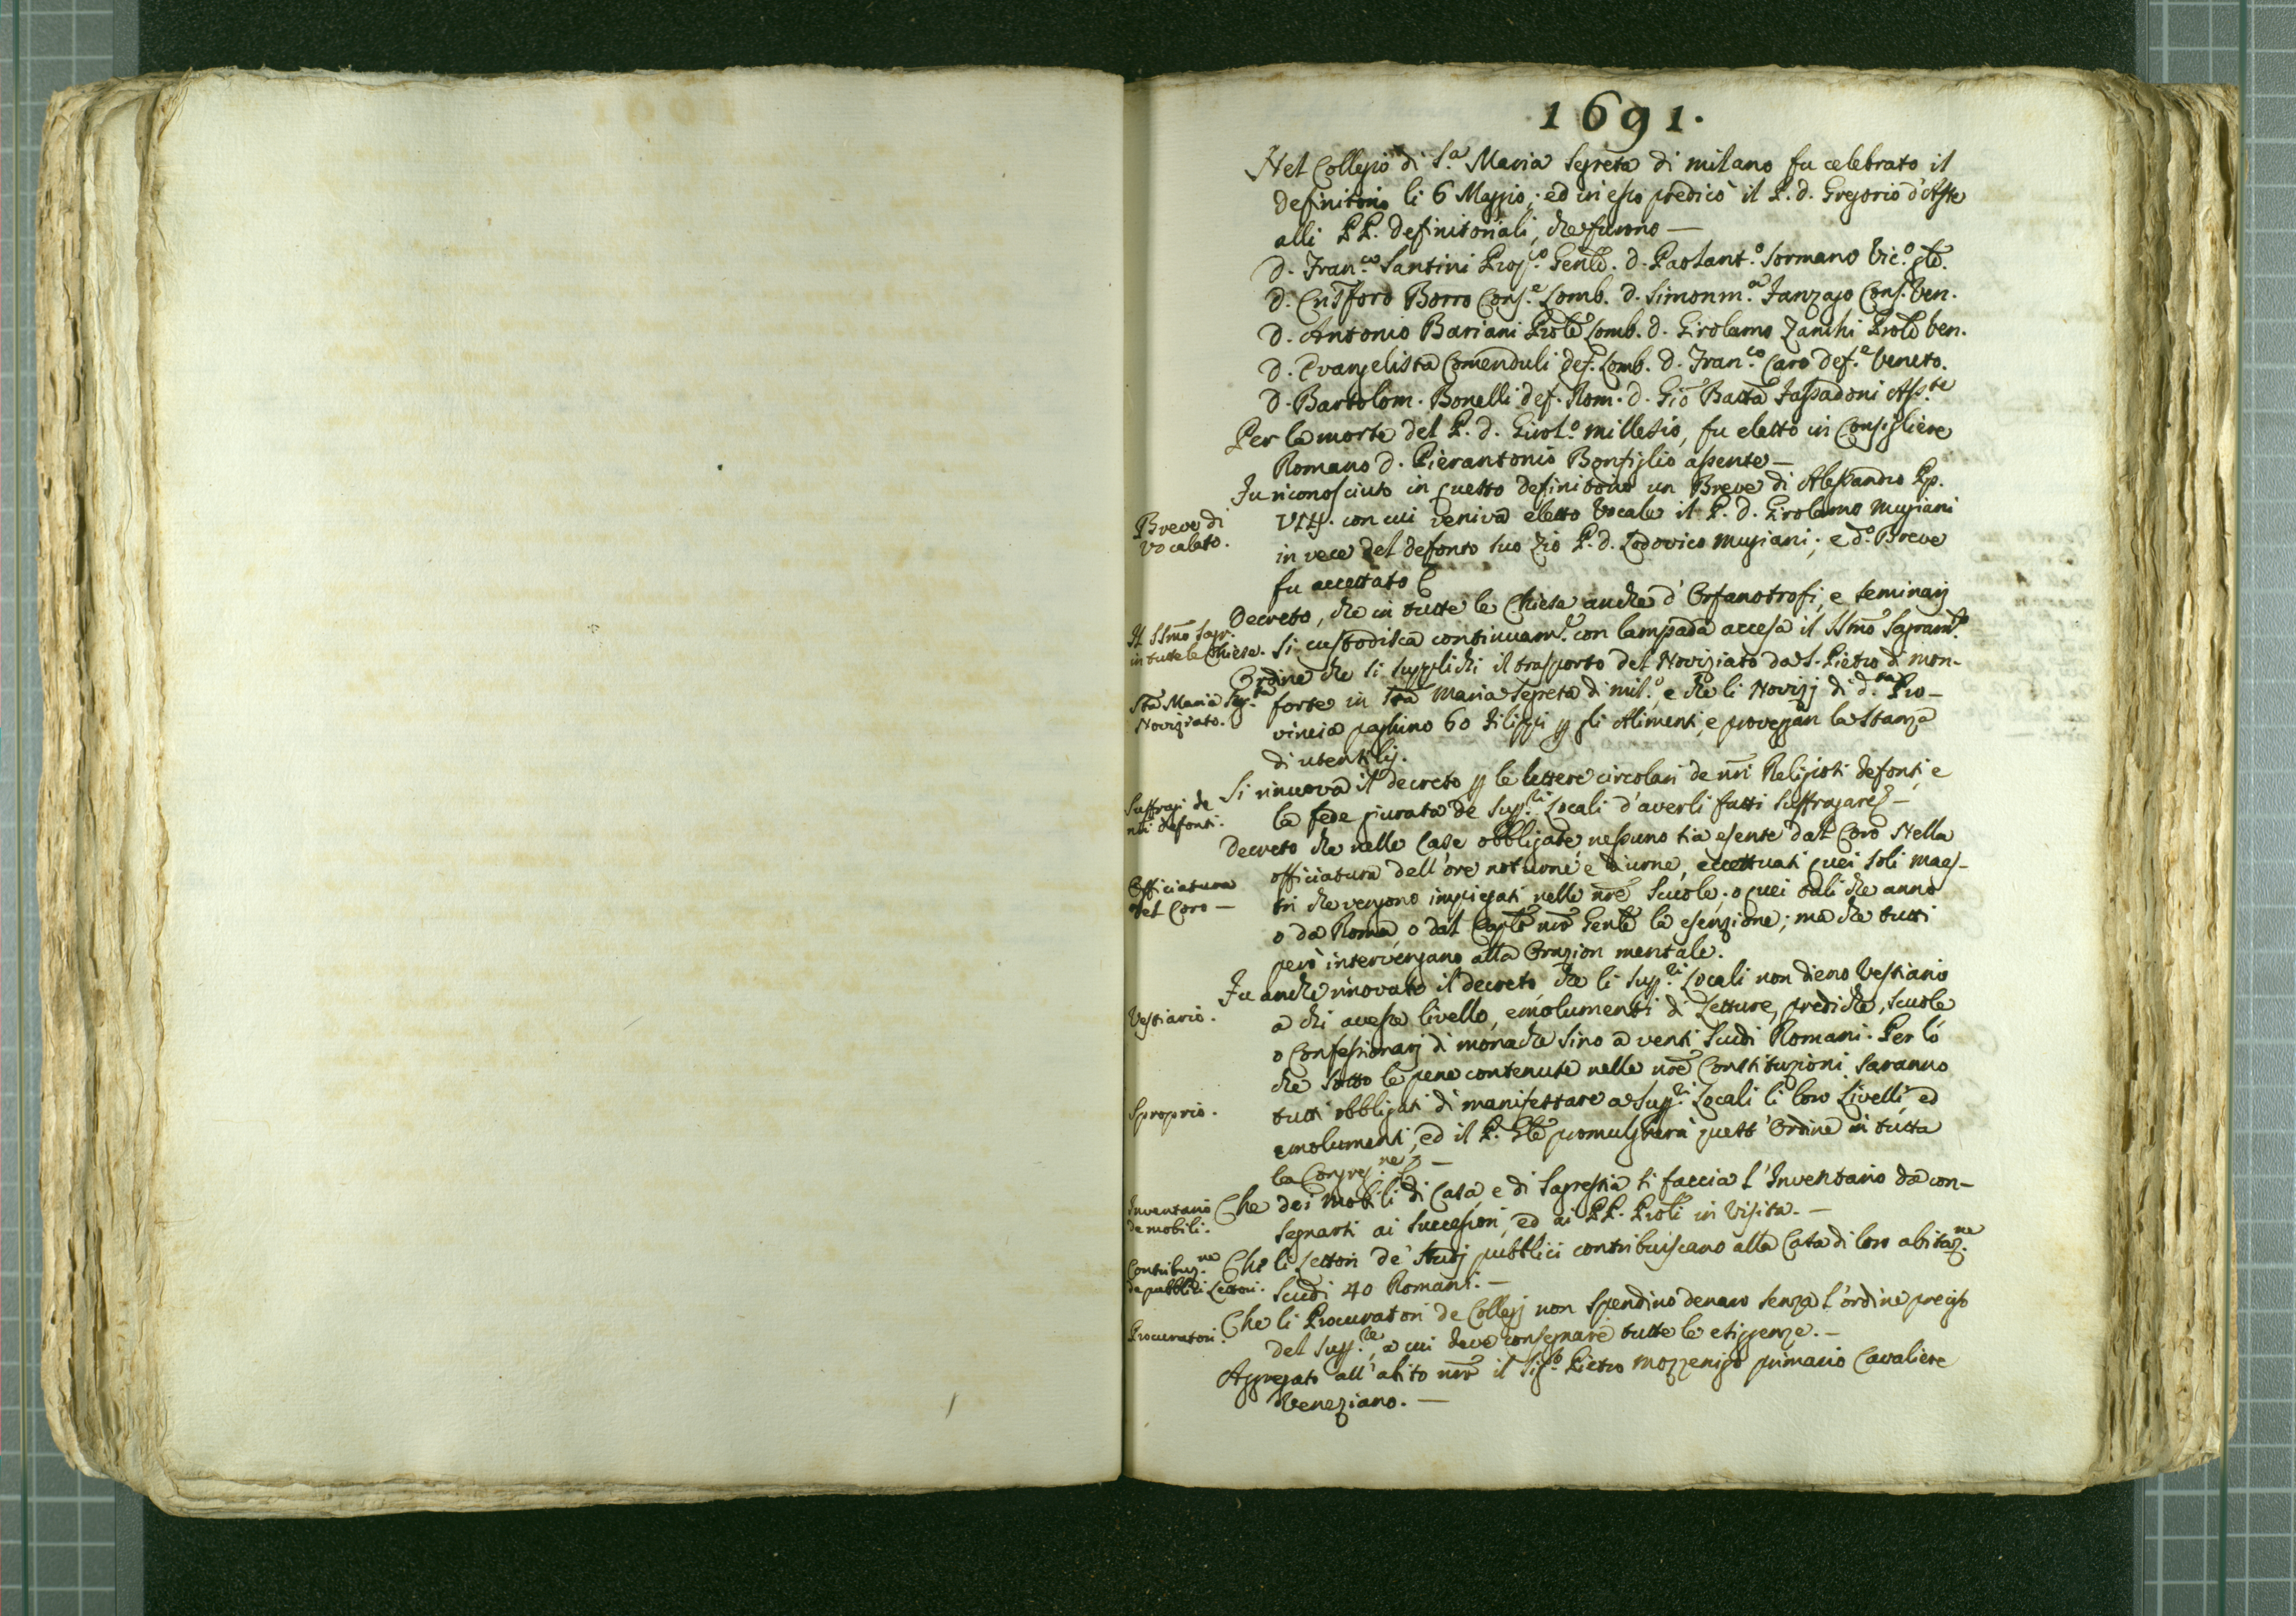 1691.
Nel Collegio di S.a Maria Segreta di milano fu celebrato il
definitorio li 6 Maggio; ed in esso predicò il P. d. Gregorio d'Aste
alli PP. definitoriali, che furono —
d. Fran.co Santini Pros.to Genle. d. Paolant.o Sormano Vic.o gle.
d. Cristforo Borro Cons.e Lomb. d. Simonm.a Zanzago Cons. Ven.
d. Antonio Bariani Prole Lomb. d. Girolamo Zanchi Prole Ven.
d. Evangelista Comenduli def. Lomb. d. Fran.co Caro def.e Veneto.
d. Bartolom. Bonelli def. Rom. d. Gio Batta Fassadoni Ass.te
Per la morte del P. d. Girol.o millesio, fu eletto in Consigliere
Romano d. Pierantonio Bonfiglio assente —
Fu riconosciuto in questo definitorio un Breve di Alessandro Pp.
Breve di
vocalato.
VIII. con cui veniva eletto Vocale il P. d. Girolamo Mugiani
in vece del defonto suo Zio P. d. Lodovico mugiani; e d.o Breve
fu accettato
Decreto, che in tutte le Chiese anche d'Orfanotrofi, e seminarj
Il SSmo Sagr.
in tutte le Chiese.
si custodisca continuam.te con lampada accesa il SSmo Sagram.to
Ordine che si supplichi il trasporto del Noviziato da S. Pietro di mon-
Sta Maria Seg.ta
Noviziato.
forte in Sta Maria Segreta di mil.o, e che li Novizj di d.ta Pro-
vincia paghino 60 Filippi p gli Alimenti, e proveggan la stanza
di utentilj.
Si rinuova il decreto p le lettere circolari de nri Religiosi defonti, e
Suffragi de
nri defonti.
la fede giurata de Supp.ri Locali d'averli fatti suffragare —
Decreto che nelle Case obbligate, nessuno sia esente dal Coro Nella
Officiatura
del Coro —
officiatura dell'ore noturne e diurne, eccettuati quei soli maes-
tri che vengono impiegati nelle nre Scuole; o quei tali che anno
o da Roma, o dal Caplo nro Genle la esenzione; ma che tutti
però intervengano alla Orazion mentale.
Fu anche rinovato il decreto, che li Supp.ri Locali non dieno Vestiario
Vestiario.
a chi avesse livello, emolumenti di Letture, prediche, scuole
o Confessionarj di monache sino a venti Scudi Romani. Per lo
che sotto le pene contenute nelle nre Constituzioni saranno
Sproprio.
tutti obbligati di manifestare a Supp.ri Locali li loro Livelli, ed
emolumenti, ed il P. Gle promulgherà quest'Ordine in tutta
la Congreg.ne —
Inventario
de mobili.
Che dei mobili di Casa, e di Sagrestia si faccia l'Inventario da con-
segnarsi ai Successori, ed ai PP. Proli in Visita. —
Contribuz.ne
de pubblici Lettori.
Che li Lettori de' Studj pubblici contribuiscano alla Casa di loro abitaz.ne
Scudi 40 Romani. —
Procuratori.
Che li Procuratori de Collegj non spendino denaro senza l'ordine preciso
del Supp.re, a cui deve consegnare tutte le esiggenze. —
Aggregato all'abito nro il Sig.r Pietro mozzenigo primario Cavaliere
Veneziano. —